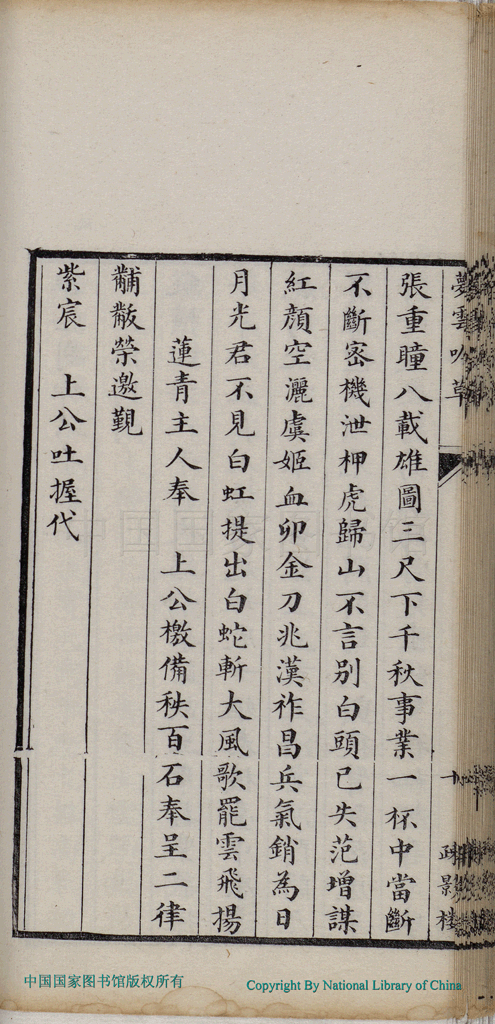 夢雲吹草
十
疎影樓
張重瞳八載雄圖三尺下千秋事業一杯中當斷
不斷密機泄柙虎歸山不言別白頭已失范增謀
紅顏空灑虞姬血卯金刀兆漢祚昌兵氣銷為日
月光君不見白虹提出白蛇斬大風歌罷雲飛揚
蓮青主人奉 上公檄備秩百石奉呈二律
黼黻榮邀覲
紫宸 上公吐握代
中国国家图书馆版权所有
Copyright By National Library of China